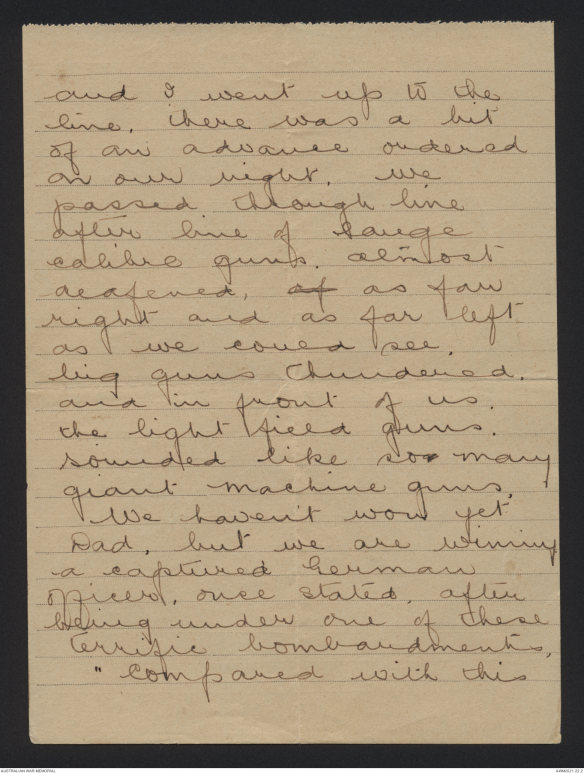 and I went up to the
line. there was a bit
of an advance ordered
on our right. We
passed through line
after line of large
calibre guns. almost
deafened, of as far
right and as far left
as we could see.
big guns thundered.
and in front of us.
the light field guns.
sounded like so many
giant machine guns.
We haven't won yet
Dad, but we are winning
a captured German
officer, once stated, after
being under one of these
terrific bombardments,
" Compared with this
AUSTRALIAN WAR MEMORIAL